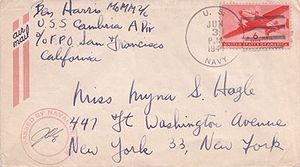 Ben Harris MoMM 2/c
U.S.S. Cambria A Div
c/o F.P.O. San Francisco
California
air mail
U. S.
JUN
3
P.M.
1944
NAVY
UNITED STATES OF AMERICA
6
Miss Myna S. Hagle
447 Ft Washington Avenue
New York 33, New York
PASSED BY NAVAL